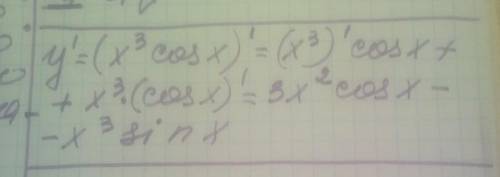 y' = (x³ cos x)' = (x³)' cos x +
+ x³ · (cos x)' = 3x² cos x -
- x³ sin x